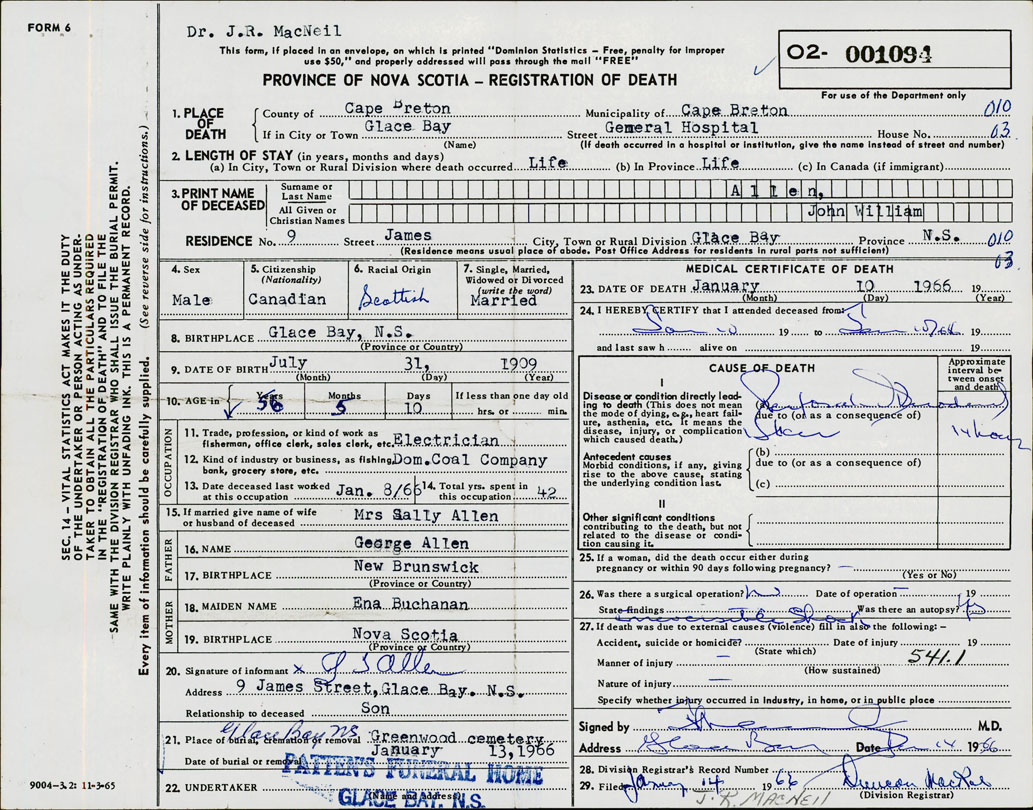 FORM 6
Dr. J.R. MacNeil
This form, if placed in an envelope, on which is printed "Dominion Statistics – Free, penalty for improper
use $50," and properly addressed will pass through the mail "FREE"
PROVINCE OF NOVA SCOTIA – REGISTRATION OF DEATH
02- 001094
For use of the Department only
1. PLACE OF DEATH
County of Cape Breton Municipality of Cape Breton 010
If in City or Town Glace Bay Street Gemeral Hospital House No. 03
(Name) (If death occurred in a hospital or institution, give the name instead of street and number)
2. LENGTH OF STAY (in years, months and days)
(a) In City, Town or Rural Division where death occurred Life (b) In Province Life (c) In Canada (if immigrant)
3. PRINT NAME OF DECEASED
Surname or Last Name Allen,
All Given or Christian Names John William
RESIDENCE No. 9 Street James City, Town or Rural Division Glace Bay Province N.S. 010
(Residence means usual place of abode. Post Office Address for residents in rural parts not sufficient) 03
4. Sex Male
5. Citizenship (Nationality) Canadian
6. Racial Origin Scottish
7. Single, Married, Widowed or Divorced (write the word) Married
8. BIRTHPLACE Glace Bay, N.S.
(Province or Country)
9. DATE OF BIRTH July 31, 1909
(Month) (Day) (Year)
10. AGE in Years 56 Months 5 Days 10 If less than one day old hrs. or min.
OCCUPATION
11. Trade, profession, or kind of work as
fisherman, office clerk, sales clerk, etc. Electrician
12. Kind of industry or business, as fishing, Dom.Coal Company
bank, grocery store, etc.
13. Date deceased last worked at this occupation Jan. 8/66 14. Total yrs. spent in this occupation 42
15. If married give name of wife
or husband of deceased Mrs Sally Allen
FATHER
16. NAME George Allen
17. BIRTHPLACE New Brunswick
(Province or Country)
MOTHER
18. MAIDEN NAME Ena Buchanan
19. BIRTHPLACE Nova Scotia
(Province or Country)
20. Signature of informant x Allen
Address 9 James Street, Glace Bay. N.S.
Relationship to deceased Son
Glace Bay NS
21. Place of burial, cremation or removal Greenwood cemetery
Date of burial or removal January 13,1966
22. UNDERTAKER PATTEN'S FUNERAL HOME
(Name and address)
GLACE BAY, N.S.
MEDICAL CERTIFICATE OF DEATH
23. DATE OF DEATH January 10 1966 19
(Month) (Day) (Year)
24. I HEREBY CERTIFY that I attended deceased from
19 to 19
and last saw h alive on 19
CAUSE OF DEATH
Approximate interval between onset and death
I
Disease or condition directly leading to death (This does not mean
the mode of dying, e.g., heart failure, asthenia, etc. It means the
disease, injury, or complication which caused death.)
(a) Perforated Duodenal
due to (or as a consequence of)
Ulcer 14 hours
Antecedent causes
Morbid conditions, if any, giving
rise to the above cause, stating
the underlying condition last.
(b)
due to (or as a consequence of)
(c)
II
Other significant conditions
contributing to the death, but not
related to the disease or condition causing it.
25. If a woman, did the death occur either during
pregnancy or within 90 days following pregnancy? –
(Yes or No)
26. Was there a surgical operation? no Date of operation –
State findings Irreversible Shock Was there an autopsy?
27. If death was due to external causes (violence) fill in also the following: –
Accident, suicide or homicide? Date of injury 19
(State which)
541.1
Manner of injury –
(How sustained)
Nature of injury –
Specify whether injury occurred in Industry, in home, or in public place
Signed by M.D.
Address Glace Bay Date Jan 14 1966
28. Division Registrar's Record Number
29. Filed January 14 1966 Duncan MacNeil
(Division Registrar)
J. R. MACNEIL
SEC. 14 – VITAL STATISTICS ACT MAKES IT THE DUTY
OF THE UNDERTAKER OR PERSON ACTING AS UNDER-
TAKER TO OBTAIN ALL THE PARTICULARS REQUIRED
IN THE "REGISTRATION OF DEATH" AND TO FILE THE
SAME WITH THE DIVISION REGISTRAR WHO SHALL ISSUE THE BURIAL PERMIT.
WRITE PLAINLY WITH UNFADING INK. THIS IS A PERMANENT RECORD.
Every item of information should be carefully supplied. (See reverse side for instructions.)
9004–3.2: 11-3-65